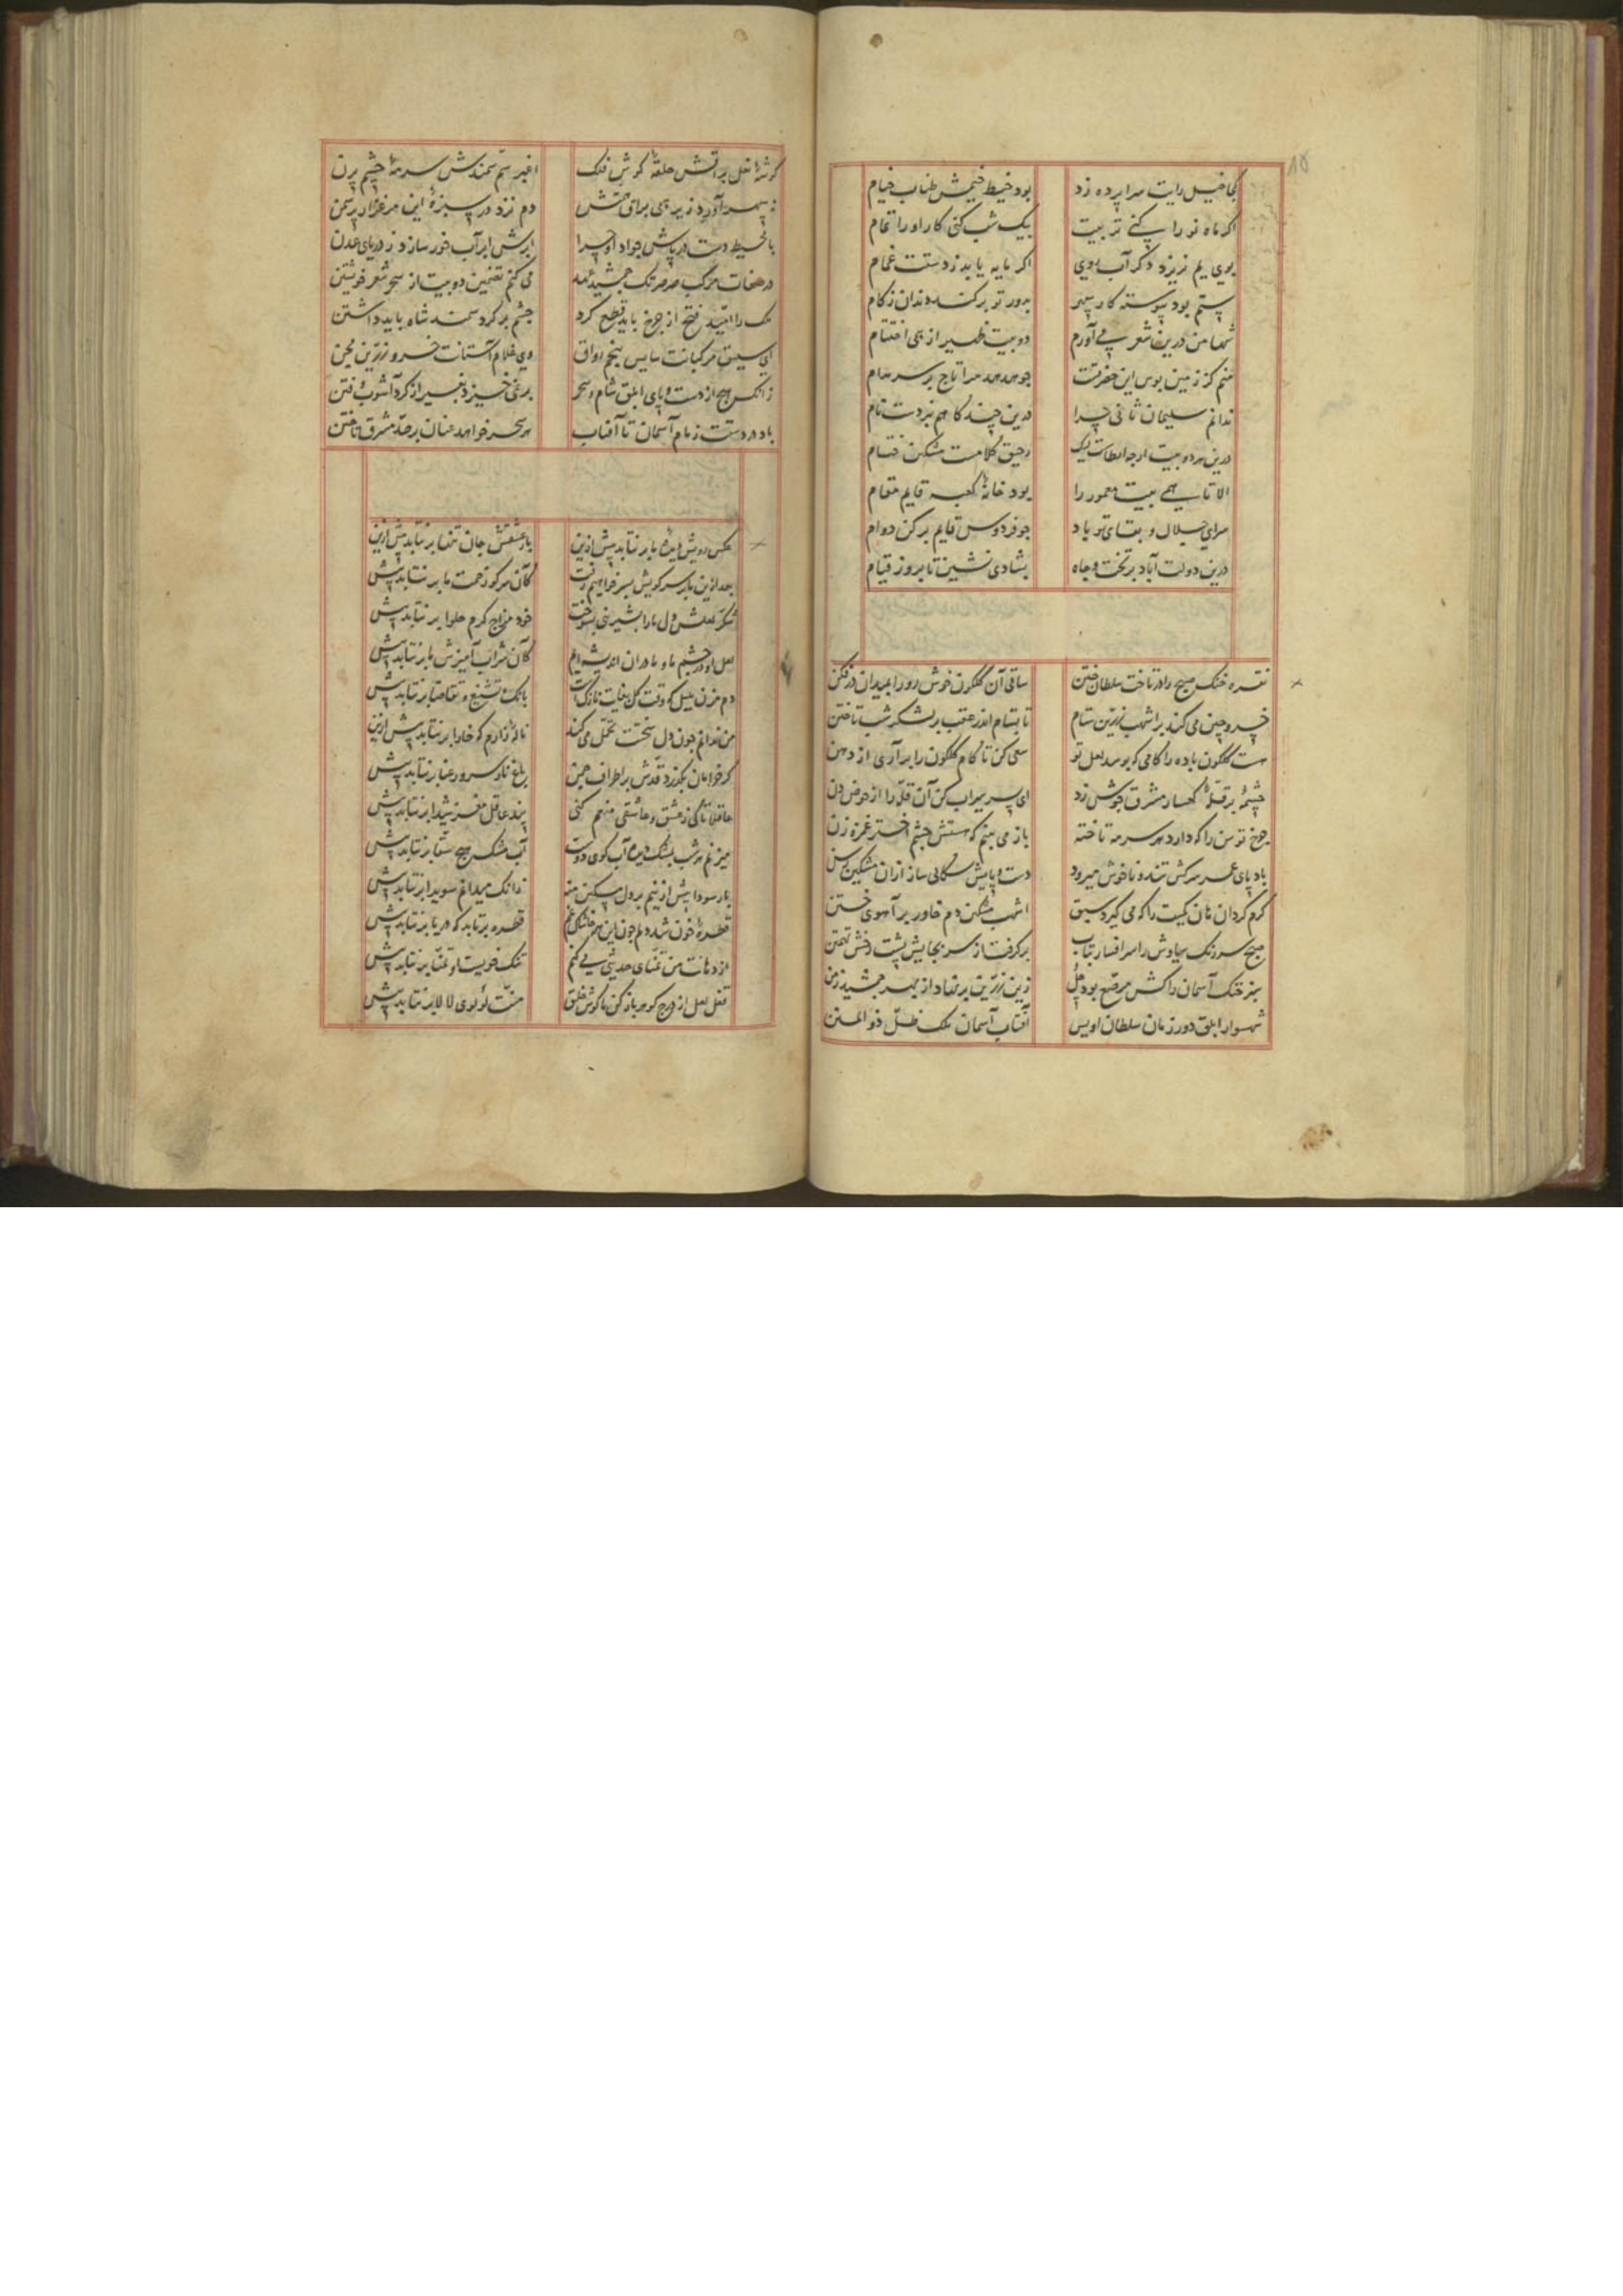 ۱۵
کجا خیل رایت سراپرده زد بود خیط خیمش طناب خیام
اگر ماه نو را کنی تربیت بیک شب کنی کار او را تمام
بوی یم نریزد دگر آب روی اگر مایه یابد ز دستت غمام
ستم بود پیوسته کار سپهر بدور تو برکند دندان ز کام
شها من درین شعر می آورم دو بیت ظهیر از پی اختتام
منم کز زمین بوس این حضرتت چو هدهد مرا تاج بر سر مدام
ندانم سلیمان ثانی چرا درین چندگاهم نبردست نام
درین هر دو بیت ارچه ایطاست لیک رحیق کلامست مشکین ختام
الا تا همی بیت معمور را بود خانه کعبه قایم مقام
سرای جلال و بقای تو باد چو فردوس قایم برکن دوام
درین دولت آباد بر تخت و جاه بشادی نشین تا بروز قیام
نقره خنک صبح را در تاخت سلطان ختن ساقی آن گلگون خوش رو را بمیدان در فکن
خسرو چین می کند بر اشهب زرین ستام تا بتسام اندر عقب بر لشکر شب تاختن
هست گلگون باده را کامی که بوسد لعل تو سعی کن تا کام گلگون را برآری از دهن
چشمه بر قله کهسار مشرق جوش زد ای پسر سیراب کن آن قله را از حوض دن
چرخ توسن را که دارد هر سر مه تاخته باز می بینم که هستش چشم اختر غمزه زن
باد پای عمر سرکش تند و ناخوش میرود دست و پایش سکالی ساز ازان مشکین رسن
گرم کردان هان کمیت را که می گیرد سبق اشهب مشکین دم خاور بر آهوی ختن
صبح سرد تک سیاوش را سر افسار بتاب برگرفت از سر بجایش پشت رخش تهمتن
سبز خنک آسمان را کش مرصع بود جل زین زرین بر نهاد از بهر جمشید زمن
شهسوار ابلق دور زمان سلطان اویس آفتاب آسمان ملک ظل ذو المنن
گوشه نعل براقش حلقه گوش فلک اغبر سم سمندش سرمه چشم پرن
سپهر آورد زیر پی برای دم نزد در سبزه این مرغزار پر سمن
با محیط دست در پاش جواد او چرا ابرش ابر آب خور سازد ز دریای عدن
در صفات مرکب صرصر تک جمشید عهد می کنم تضمین دو بیت از سحر شعر خویشتن
ملک را امید فتح از چرخ باید قطع کرد چشم بر گرد سمند شاه باید داشتن
ای سبق مرکبانت سایس پنجم رواق وی غلام آستانت خسرو زرین مجن
زانکس هیچ از دست و پای ابلق شام و سحر بر نمی خیزد بغیر از گرد آشوب و فتن
باد در دستت زمام آسمان تا آفتاب هر سحر خواهد عنان بر حد مشرق تاختن
عکس رویش دیده ما بر نتابد بیش ازین بار عشقش جان تنها بر نتابد بیش ازین
بعد ازین ما بر سر کویش بسر خواهیم رفت کان سر کو زحمت ما بر نتابد بیش
شکر لعلش دل ما را بشیرینی بسوخت خود مزاج گرم حلوا بر نتابد بیش
لعل او در چشم ما و ما در ان اندیشه ایم کان شراب آمیزش ما بر نتابد بیش
دم مزن بلبل که وقت گل بغایت نازکست بانگ و تشنیع و تقاضا بر نتابد بیش
من ندانم چون دل سختت تحمل می کند ناله زارم که خارا بر نتابد بیش ازین
گر خرامان بگذرد قدش بر اطراف چمن باغ ناز سرو رعنا بر نتابد بیش
عاقلا تا کی ز عشق و عاشقی منعم کنی پند عاقل مغز شیدا بر نتابد بیش
میزنم هر شب بمشک دیده آب کوی دوست آب مشک هیچ سقا بر نتابد بیش
بار سودا بیش ازینم بر دل مسکین منه زانک میدانم سویدا بر نتابد بیش
قطره خون شد دلم چون این همه غم قطره برتابد که دریا بر نتابد بیش
از دهانت من تمنای حدیثی می کنم تنگ خویست او تمنا بر نتابد بیش
قفل لعل از درج گوهر باز کن تا گوش خلق منت لولوی لالا بر نتابد بیش